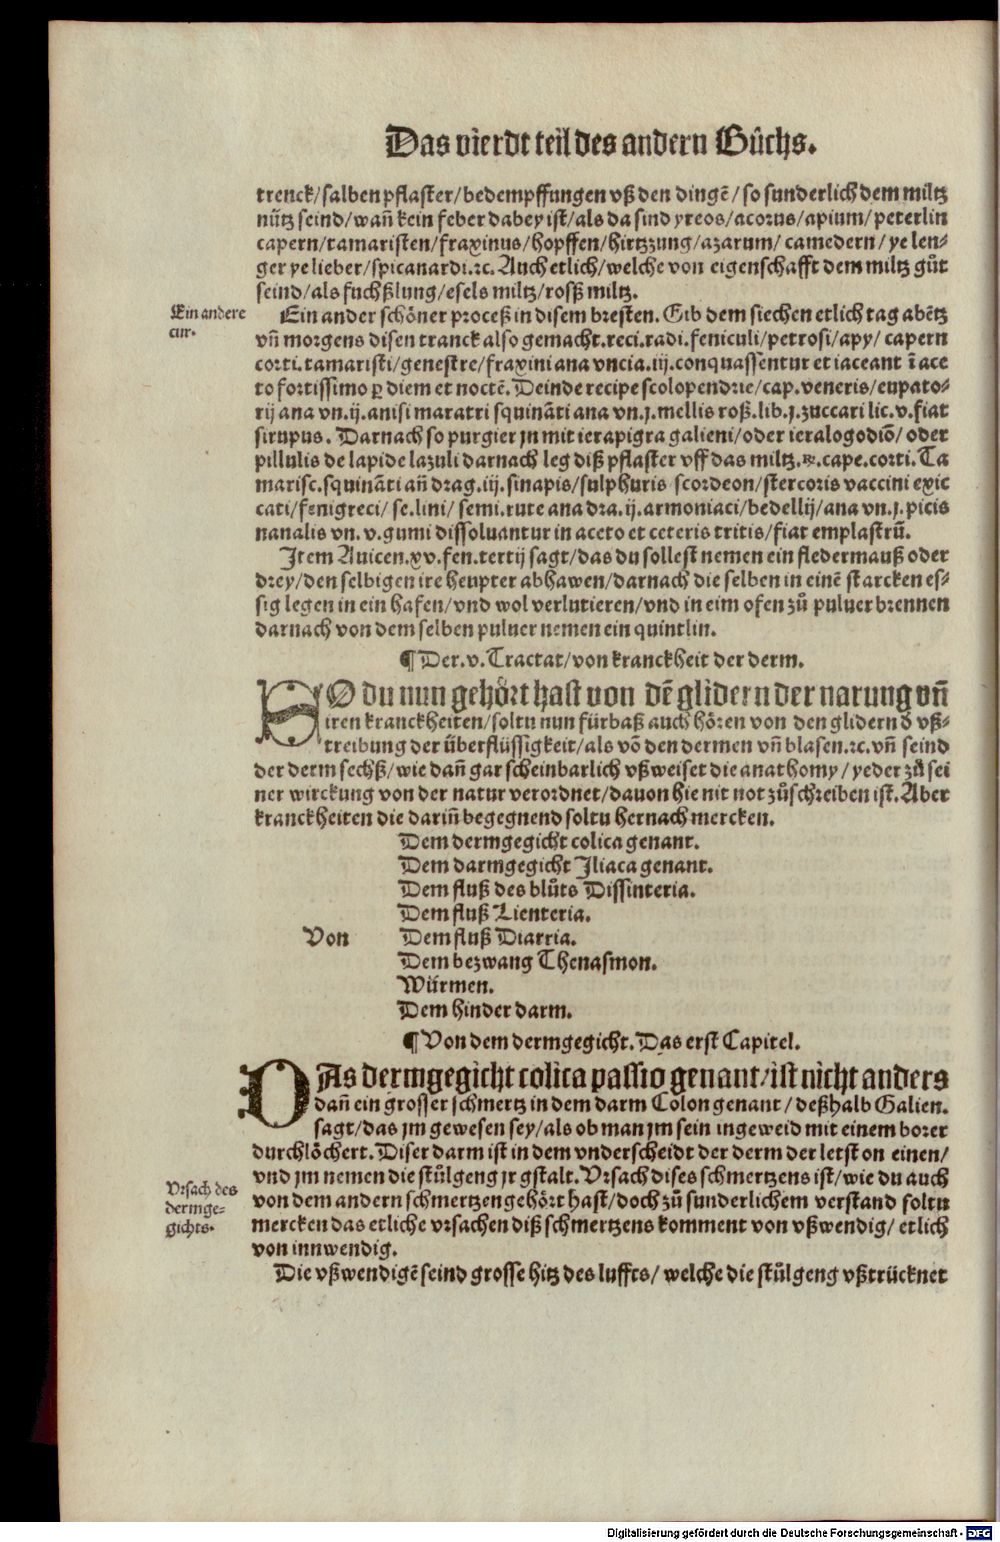 Das vierdt teil des andern Bůchs.
trenck/salben pflaster/bedempffungen vß den dingē/so sunderlich dem miltz
nütz seind/wañ kein feber dabey ist/als da sind yreos/acorus/apium/peterlin
capern/tamaristen/fraxinus/hopffen/hirtzzung/azarum/camedern/ye len-
ger ye lieber/spicanardi.ꝛc. Auch etlich/welche von eigenschafft dem miltz gůt
seind/als fuchßlung/esels miltz/rosß miltz.
Ein andere
cur.
Ein ander schöner proceß in disem bresten. Gib dem siechen etlich tag abētz
vñ morgens disen tranck also gemacht.reci.radi.feniculi/petrosi/apy/capern
corti.tamaristi/genestre/fraxini ana vncia.iij.conquassentur et iaceant ī ace
to fortissimo ꝑ diem et noctē. Deinde recipe scolopendrie/cap.veneris/eupato-
rij ana vn.ij.anisi maratri squināti ana vn.j.mellis roß.lib.j.zuccari lic.v.fiat
sirupus. Darnach so purgier jn mit ierapigra galieni/oder ieralogodiō/oder
pillulis de lapide lazuli darnach leg diß pflaster vff das miltz.℞.cape.corti.Ta
marisc.squināti añ drag.iij.sinapis/sulphuris scordeon/stercoris vaccini exic
cati/fenigreci/se.lini/semi.rute ana dra.ij.armoniaci/bedellij/ana vn.j.picis
nanalis vn.v.gumi dissoluantur in aceto et ceteris tritis/fiat emplastrū.
Item Auicen.xv.fen.tertij sagt/das du sollest nemen ein fledermauß oder
drey/den selbigen ire heupter abhawen/darnach die selben in einē starcken es-
sig legen in ein hafen/vnd wol verlutieren/vnd in eim ofen zů puluer brennen
darnach von dem selben puluer nemen ein quintlin.
¶ Der.v.Tractat/von kranckheit der derm.
SO du nun gehört hast von dē glidern der narung vñ
iren kranckheiten/soltu nun fürbaß auch hören von den glidern ď vß-
treibung der überflüssigkeit/als vō den dermen vñ blasen.ꝛc.vñ seind
der derm sechß/wie dañ gar scheinbarlich vßweiset die anathomy/yeder zů sei
ner wirckung von der natur verordnet/dauon hie nit not zůschreiben ist. Aber
kranckheiten die dariñ begegnend soltu hernach mercken.
Dem dermgegicht colica genant.
Dem darmgegicht Iliaca genant.
Dem fluß des blůts Dissinteria.
Dem fluß Lienteria.
Von Dem fluß Diarria.
Dem bezwang Thenasmon.
Würmen.
Dem hinder darm.
¶ Von dem dermgegicht. Das erst Capitel.
DAs dermgegicht colica passio genant/ist nicht anders
dañ ein grosser schmertz in dem darm Colon genant/deßhalb Galien.
sagt/das jm gewesen sey/als ob man jm sein ingeweid mit einem borer
durchlöchert. Diser darm ist in dem vnderscheidt der derm der letst on einen/
vnd jm nemen die stůlgeng jr gstalt. Vrsach dises schmertzens ist/wie du auch
Vrsach des
dermge-
gichts.
von dem andern schmertzen gehört hast/doch zů sunderlichem verstand soltu
mercken das etliche vrsachen diß schmertzens komment von vßwendig/etlich
von innwendig.
Die vßwendigē seind grosse hitz des luffts/welche die stůlgeng vßtrücknet
Digitalisierung gefördert durch die Deutsche Forschungsgemeinschaft - DFG